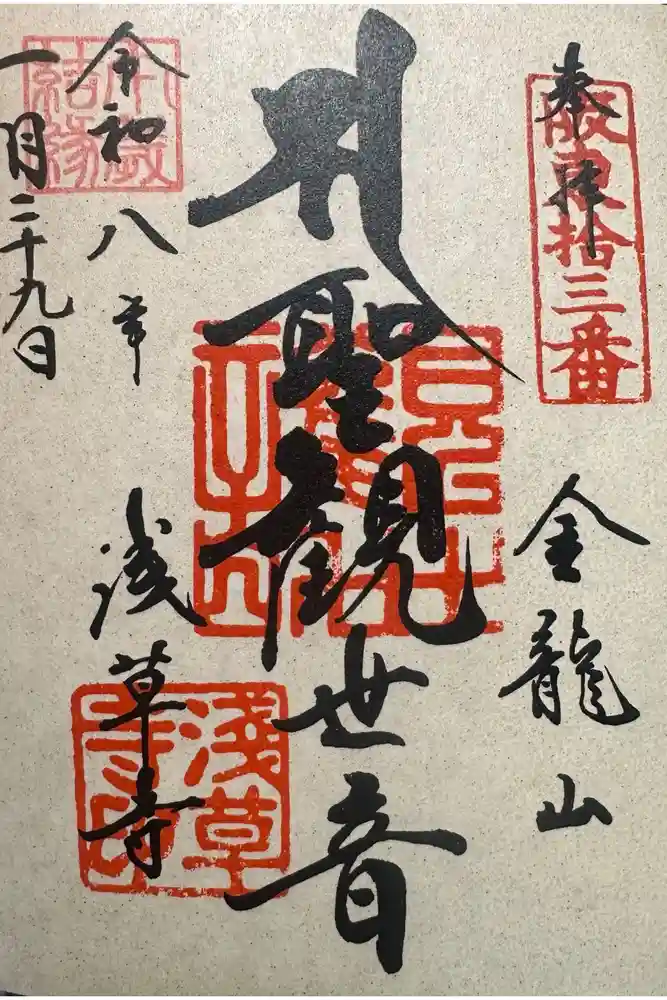 奉拝
坂東拾三番
金龍山
聖観世音
浅草寺
淺草寺印
令和八年
一月二十九日
結縁